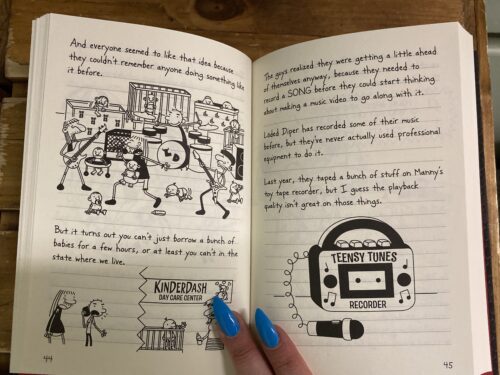 And everyone seemed to like that idea because
they couldn't remember anyone doing something like
it before.
But it turns out you can't just borrow a bunch of
babies for a few hours, or at least you can't in the
state where we live.
KINDERDASH
DAY CARE CENTER
44
The guys realized they were getting a little ahead
of themselves anyway, because they needed to
record a SONG before they could start thinking
about making a music video to go along with it.
Löded Diper has recorded some of their music
before, but they've never actually used professional
equipment to do it.
Last year, they taped a bunch of stuff on Manny's
toy tape recorder, but I guess the playback
quality isn't great on those things.
TEENSY TUNES
RECORDER
45